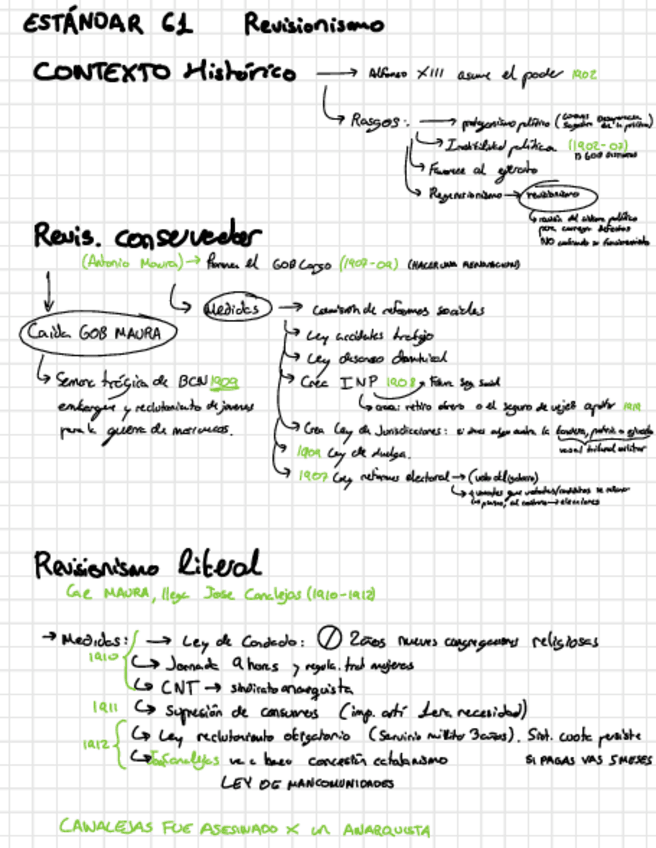 ESTÁNDAR 61 Revisionismo
CONTEXTO Histórico → Alfonso XIII asume el poder 1902
↳ Rasgos: → protagonismo político
↳ Inestabilidad política (1902-07)
↳ Favorece al ejército
↳ Regeneracionismo → revisionismo
↳ revisión del sistema político
para corregir defectos
NO cambiando su funcionamiento
Revis. conservador
(Antonio Maura) → Forma el GOB Largo (1907-09)
↳ Medidas → comisión de reformas sociales
Caída GOB MAURA
↳ Ley accidentes trabajo
↳ Ley descanso dominical
↳ Semana trágica de BCN 1909
↳ Crea INP 1908 → Futura seg. social
embarque y reclutamiento de jóvenes
↳ crea: retiro obrero o el seguro de vejez a partir 1919
para la guerra de marruecos.
↳ Crea Ley de Jurisdicciones: si dices algo contra la bandera, patria o ejército
vas al tribunal militar
1909 Ley de huelga.
1907 Ley reformas electoral → (voto obligatorio)
Revisionismo liberal
Cae MAURA, llega Jose Canalejas (1910-1912)
→ Medidas: → Ley de Candado: 2 años nuevas congregaciones religiosas
1910 ↳ Jornada 9 horas y regula. trab mujeres
↳ CNT → sindicato anarquista
1911 ↳ Supresión de consumos (imp. artí 1era necesidad)
1912 ↳ Ley reclutamiento obligatorio (Servicio militar 3 años). Sist. cuota persiste
↳ Canalejas va a hacer concesión catalanismo SI PAGAS VAS 5 MESES
LEY DE MANCOMUNIDADES
CANALEJAS FUE ASESINADO X un ANARQUISTA